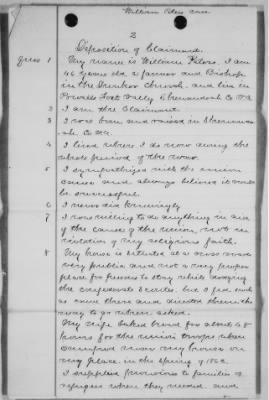 William Peters case
2
Deposition of Claimant.
Ques 1 My name is William Peters. I am
46 years old a farmer and Bishop
in the Dunker Church and live in
Powells Fort Valley Shenandoah Co Va
2 I am the Claimant
3 I was born and raised in Shenando-
ah Co Va.
4 I lived where I do now during the
whole period of the war.
5 I sympathised with the union
cause and always believed it would
be successful.
6 I never did knowingly
7 I was willing to do anything in aid
of the cause of the union, not in
violation of my religious faith.
8 My house is situated at a cross road
very public and not a very proper
place for friends to stay while dodging
the confederate scouts but I fed such
as came there and directed them the
way to go when asked.
My wife baked bread for about 48
hours for the union troops when
encamped near my house on
my place in the spring of 1862.
I supplied provisions to families of
refugees when they needed and